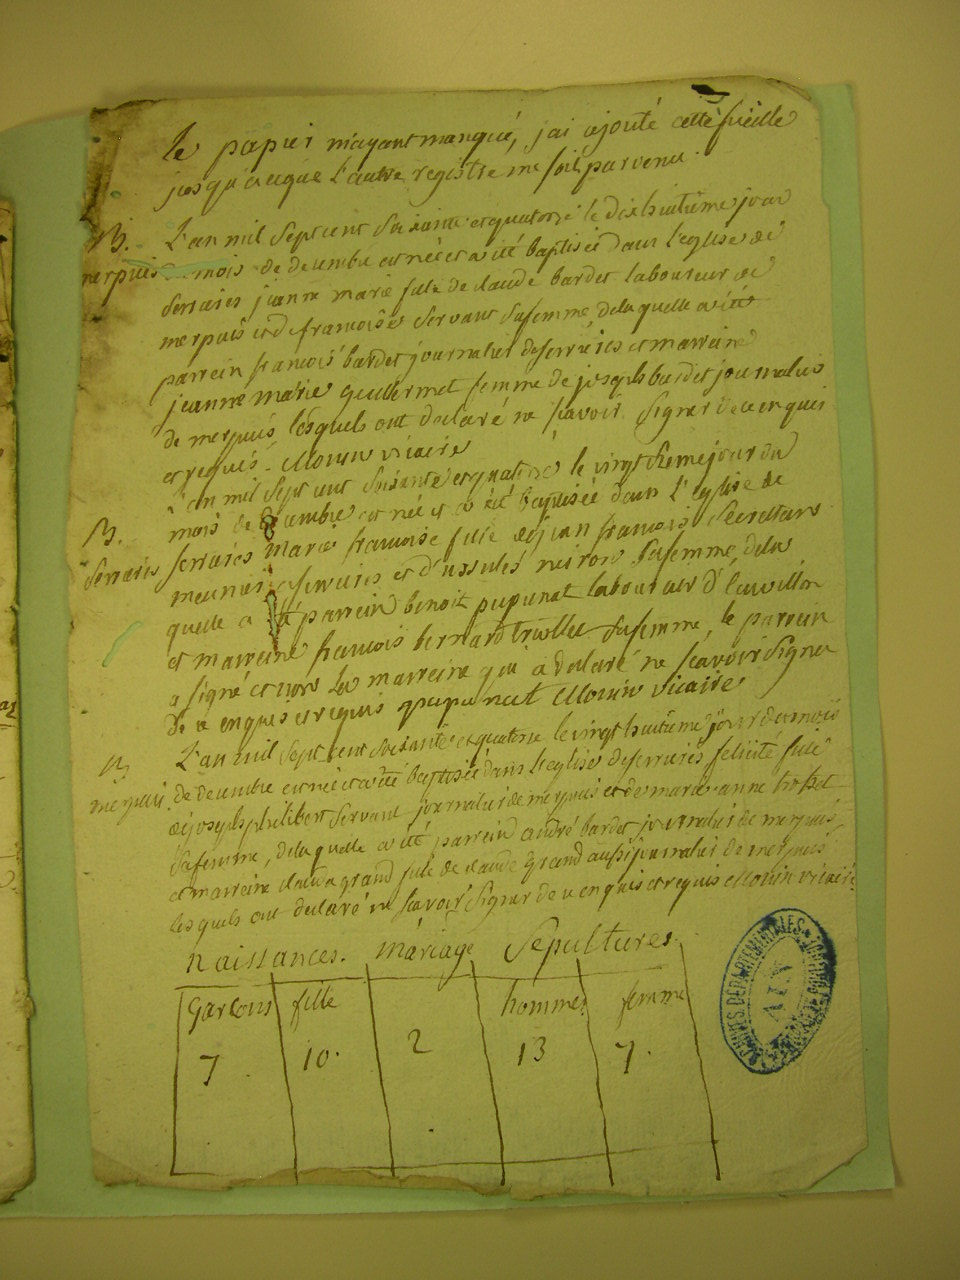 Le papier m'ayant manqué, j'ai ajouté cette fueille
jusqu'aceque l'autre registre me soit parvenu.
B. L'an mil sept cent soixante et quatorze le dixhuitieme jour
merpuis du mois de decembre est née et a été baptisée dans l'eglise de
serraies jeanne marie fille de claude bardet laboureur de
merpuis et de francoise servant sa femme, de la quelle a été
parrein francois bardet journalier de serrieres et marreine
jeanne marie guillermet femme de joseph bardet journalier
de merpuis, lesquels ont declaré ne scavoir signer de ce enquis
et requis. Monin vicaire
L'an mil sept cent soixante et quatorze le vingt jour du
B. mois de decembre est née et a été baptisée dans l'eglise de
serraies serraies marie francoise fille de jean francois
meunier de serraies et d' sa femme, de la
quelle a été parrein benoit pupunat laboureur d'
et marreine francois bernard sa femme, le parrein
a signé et non la marreine qui a declaré ne scavoir signer
de ce enquis et requis pupunat Monin vicaire
B. L'an mil sept cent soixante et quatorze le vingt huitieme jour du mois
merpuis. de decembre est née et a été baptisée dans l'eglise de serrieres felicité fille
de joseph philibert servant journalier de merpuis et de marie anne
sa femme, de la quelle a été parrein andré bardet journalier de merpuis
et marreine clauda grand fille de claude grand aussi journalier de merpuis
lesquels ont declaré ne scavoir signer de ce enquis et requis Monin vicaire
naissances. mariage sepultures.
garcons fille hommes femme
7 10. 2 13 7.
ARCHIVES DEPARTEMENTALES
AIN